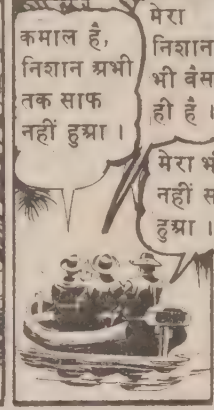 कमाल है,
निशान ग्रभी
तक साफ
नहीं हुग्रा ।
मेरा
निशान
भी वैस
ही है ।
मेरा भ
नहीं स
हुग्रा ।